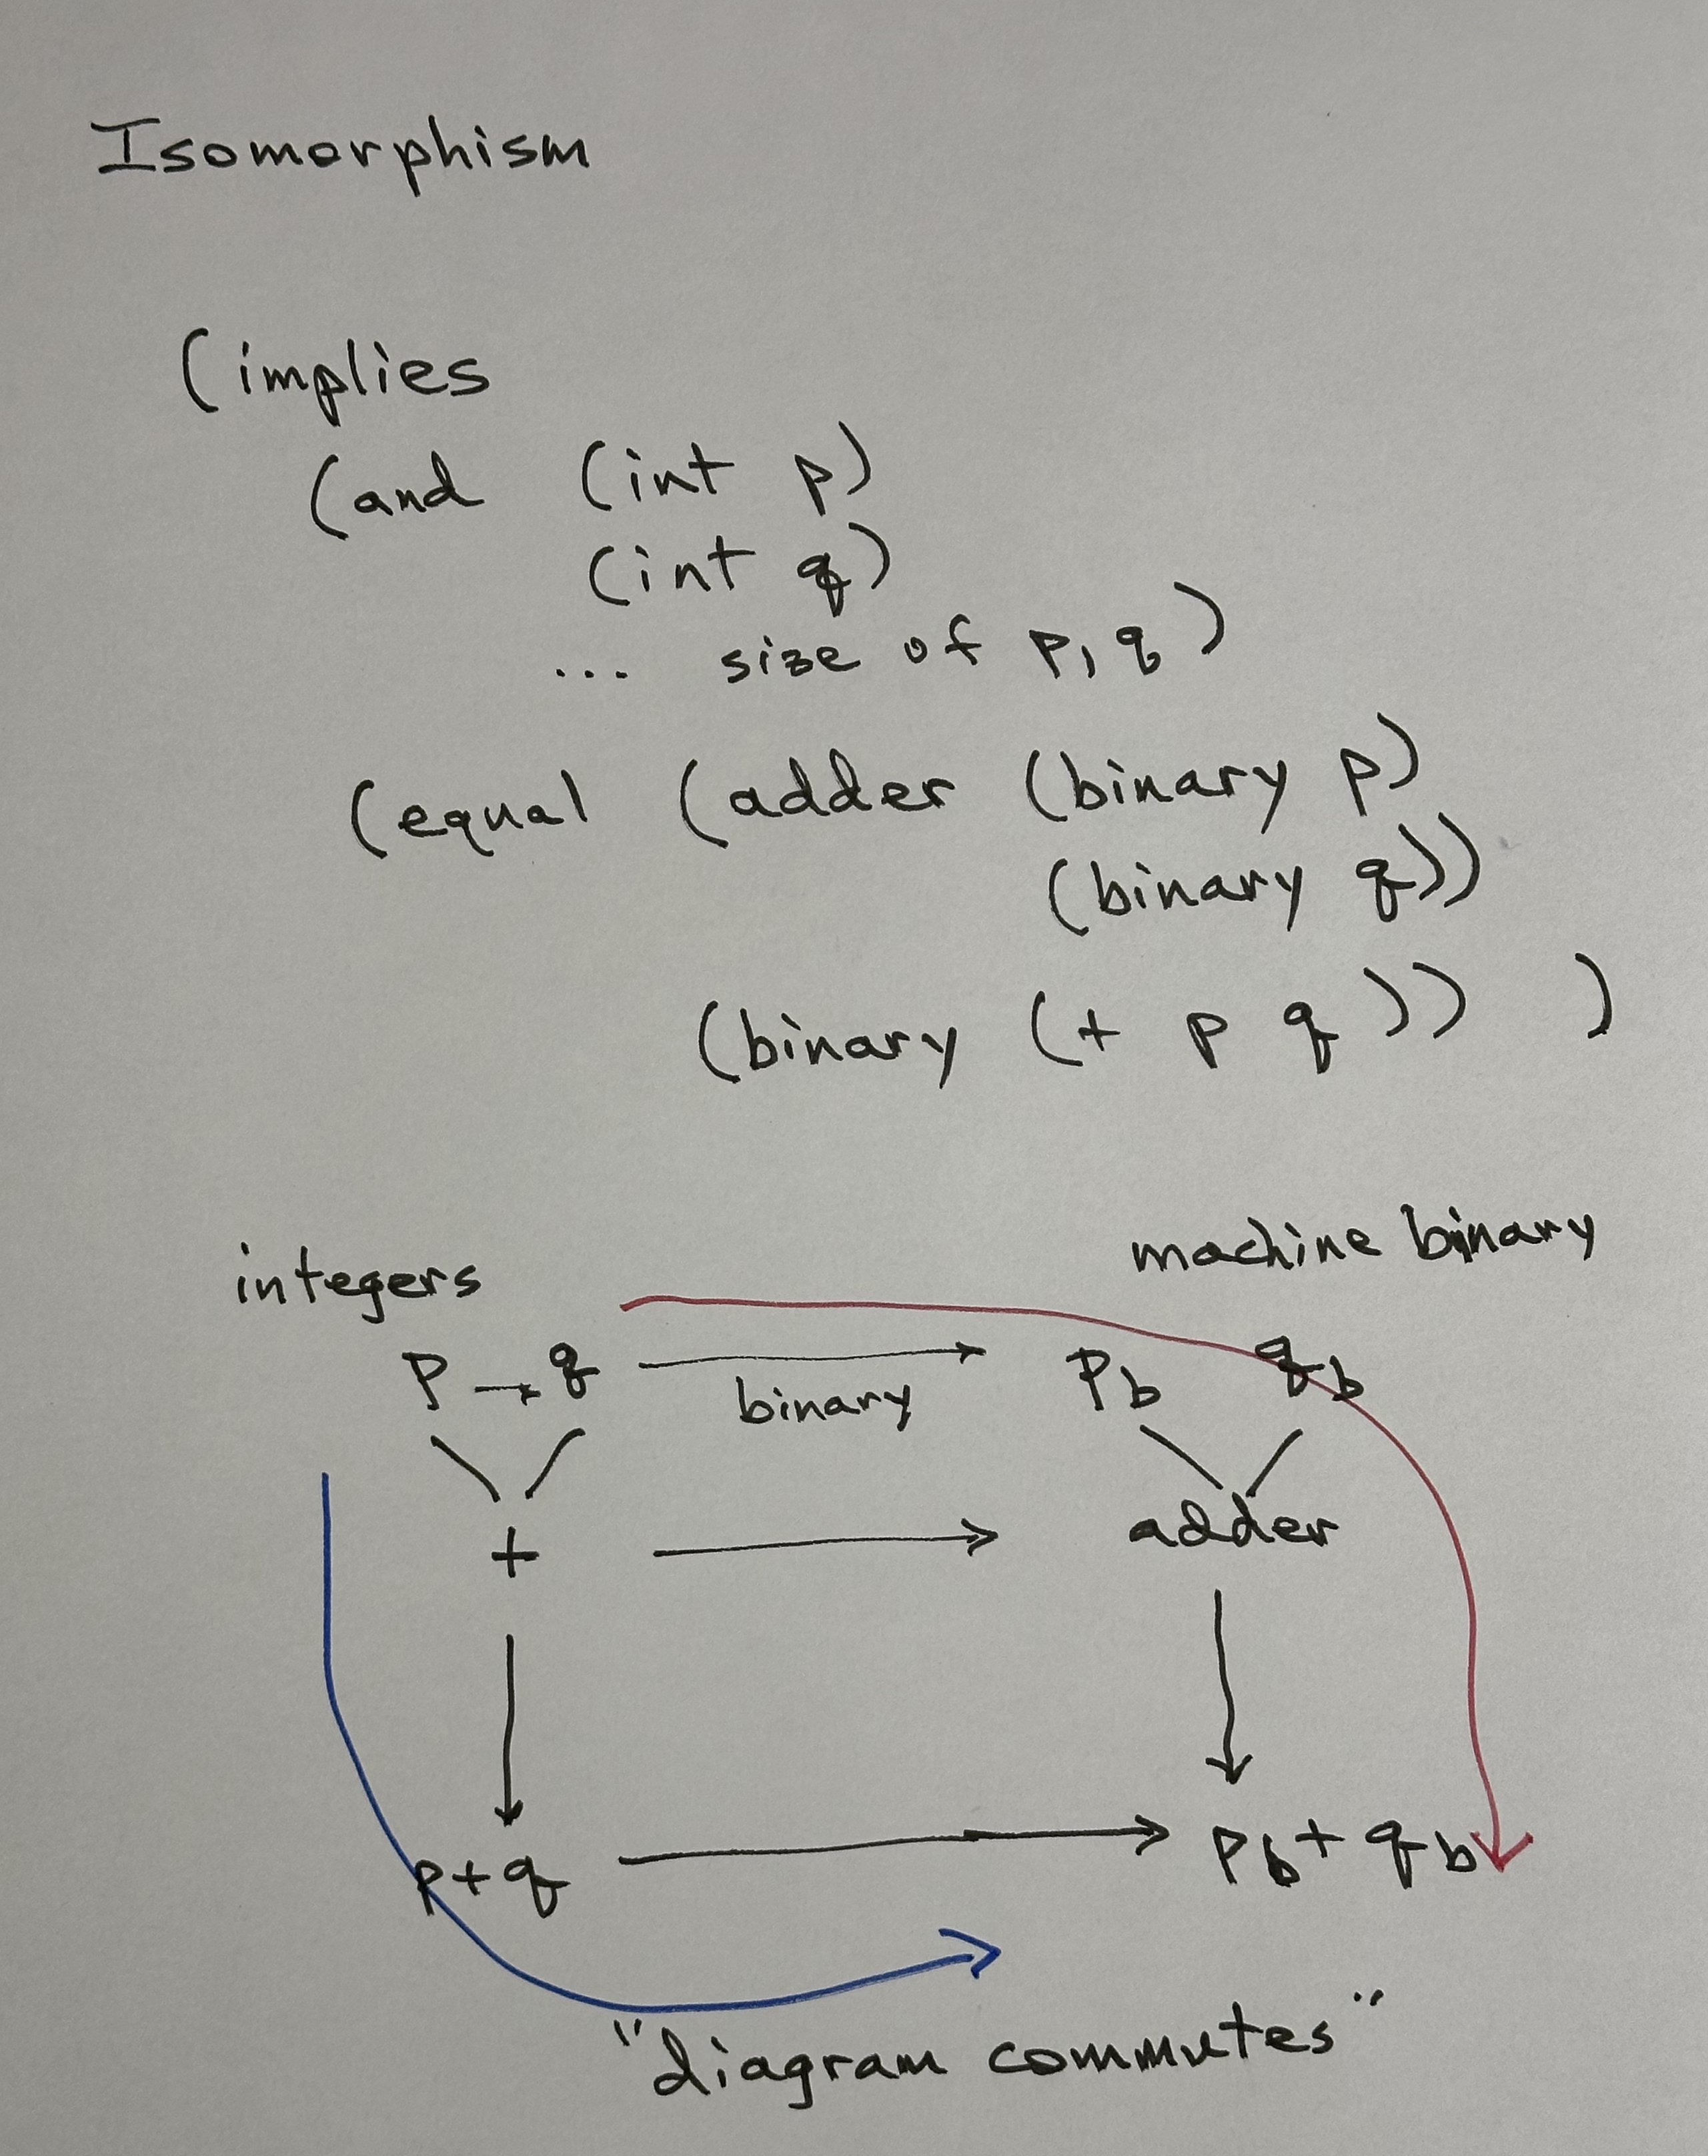 Isomorphism
(implies
(and (int p)
(int q)
... size of p, q)
(equal (adder (binary p)
(binary q))
(binary (+ p q)) )
integers machine binary
p → q → p_b q_b
binary
+ → adder
p+q → p_b + q_b
"diagram commutes"